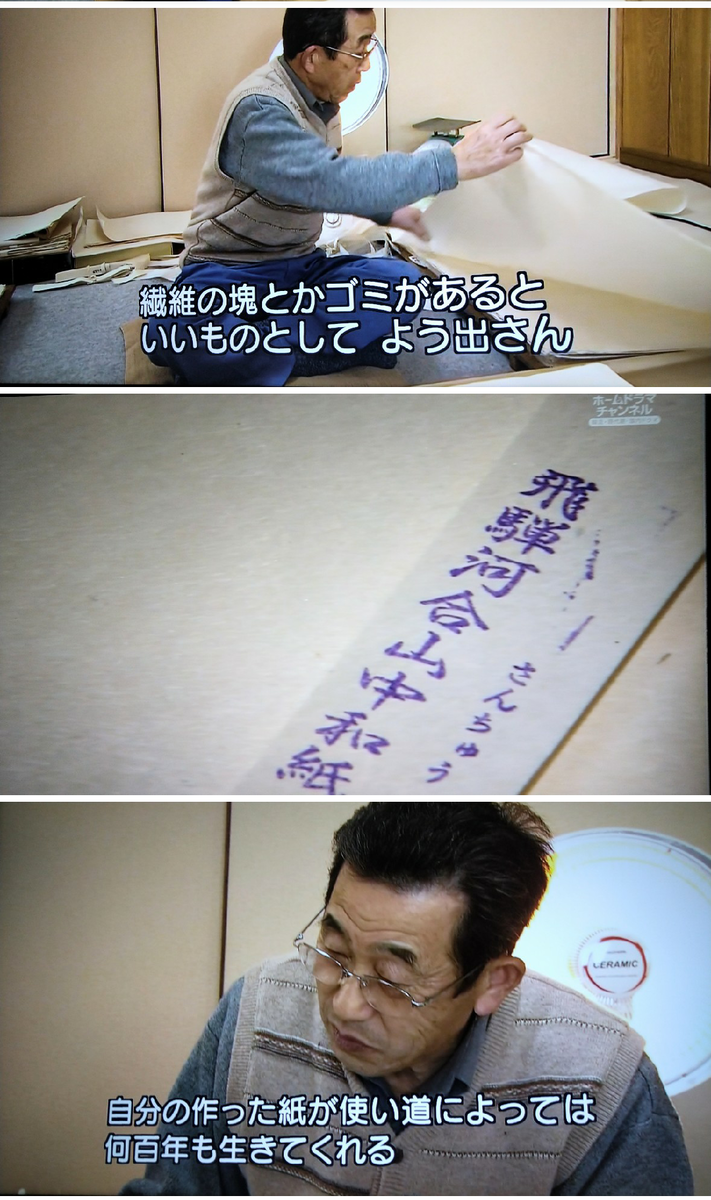 繊維の塊とかゴミがあると
いいものとして よう出さん
ホームドラマ
チャンネル
飛騨河合山中和紙
さんちゅう
CERAMIC
自分の作った紙が使い道によっては
何百年も生きてくれる